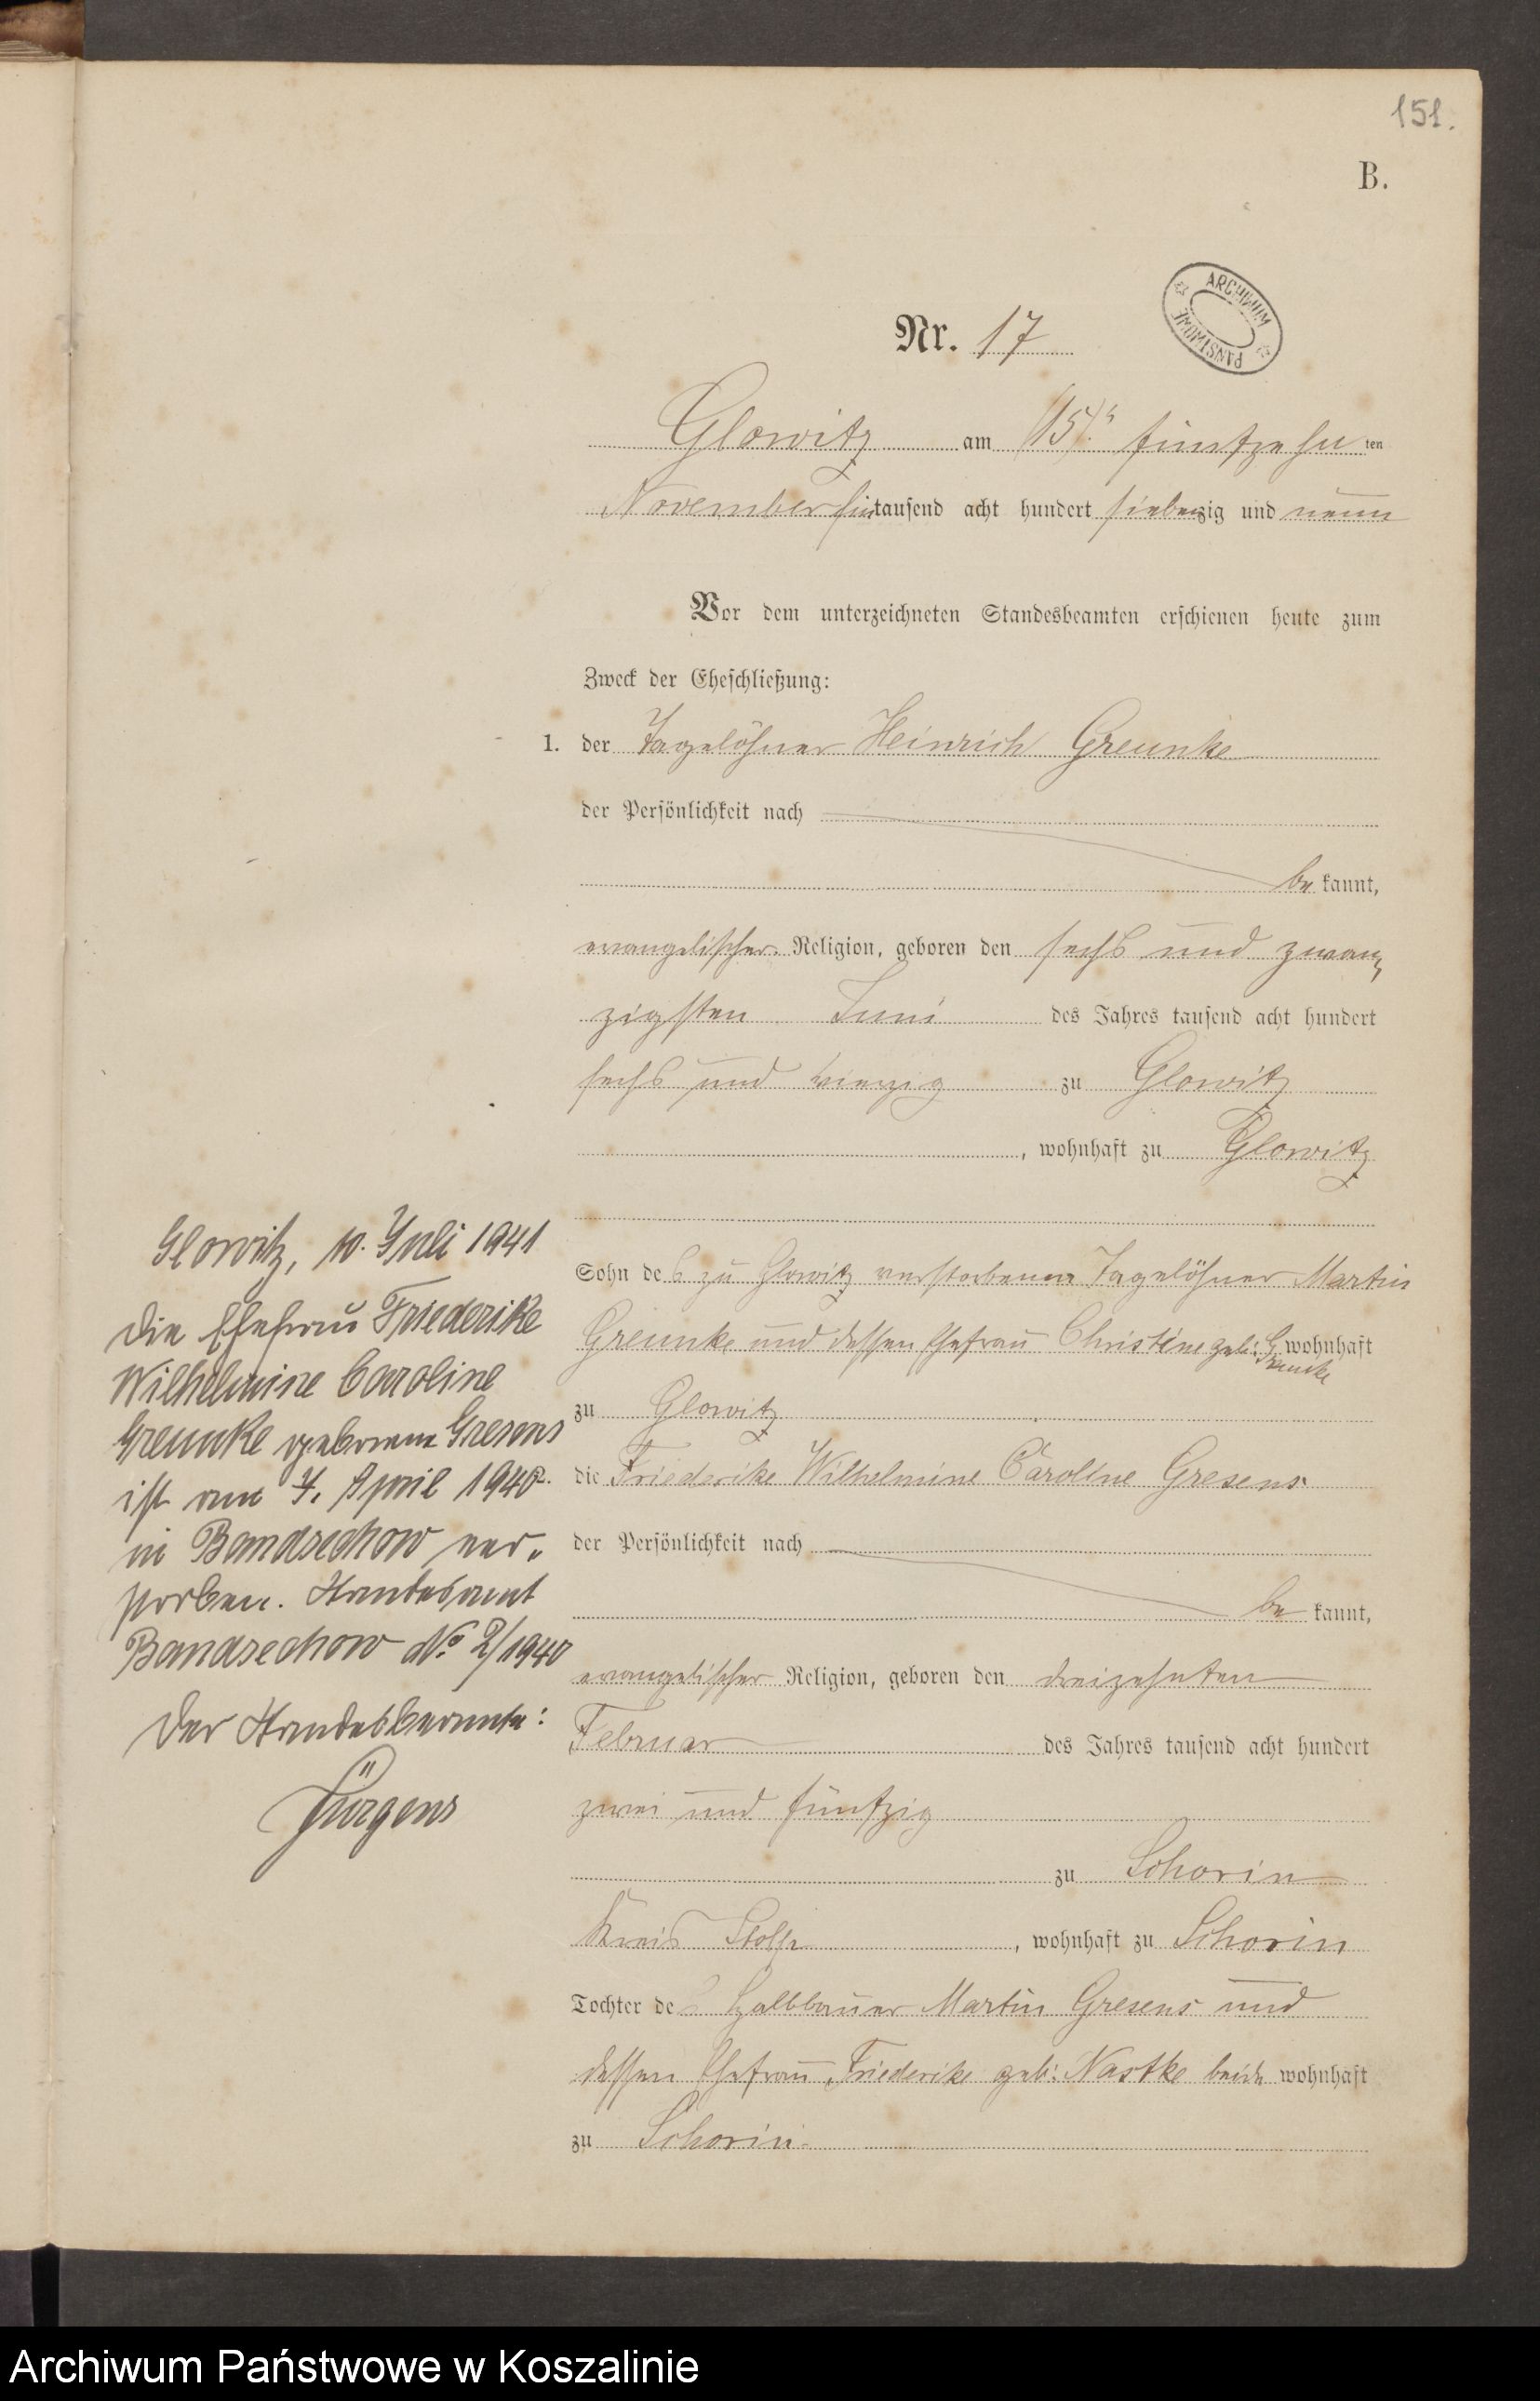 151.
B.
ARCHIWUM PAŃSTWOWE
Nr. 17
Glowitz am (15)ⁿ fünfzehnten
November eintausend acht hundert siebenzig und neun
Vor dem unterzeichneten Standesbeamten erschienen heute zum
Zweck der Eheschließung:
1. der Tagelöhner Heinrich Greunke
der Persönlichkeit nach
bekannt,
evangelischer Religion, geboren den sechs und zwan-
zigsten Juni des Jahres tausend acht hundert
sechs und vierzig zu Glowitz
, wohnhaft zu Glowitz
Sohn des zu Glowitz verstorbenen Tagelöhner Martin
Greunke und dessen Ehefrau Christine geb: Greunke wohnhaft
zu Glowitz
die Friederike Wilhelmine Caroline Gresens
der Persönlichkeit nach
bekannt,
evangelischer Religion, geboren den dreizehnten
Februar des Jahres tausend acht hundert
zwei und fünfzig
zu Schorin
Kreis Stolp, wohnhaft zu Schorin
Tochter des Halbbauer Martin Gresens und
dessen Ehefrau Friederike geb: Nastke beide wohnhaft
zu Schorin.
Glowitz, 10. Juli 1941
Die Ehefrau Friederike
Wilhelmine Caroline
Greunke geborene Gresens
ist am 7. April 1940
in Bandsechow ver-
storben. Standesamt
Bandsechow No 2/1940
Der Standesbeamte:
Jürgens
Archiwum Państwowe w Koszalinie